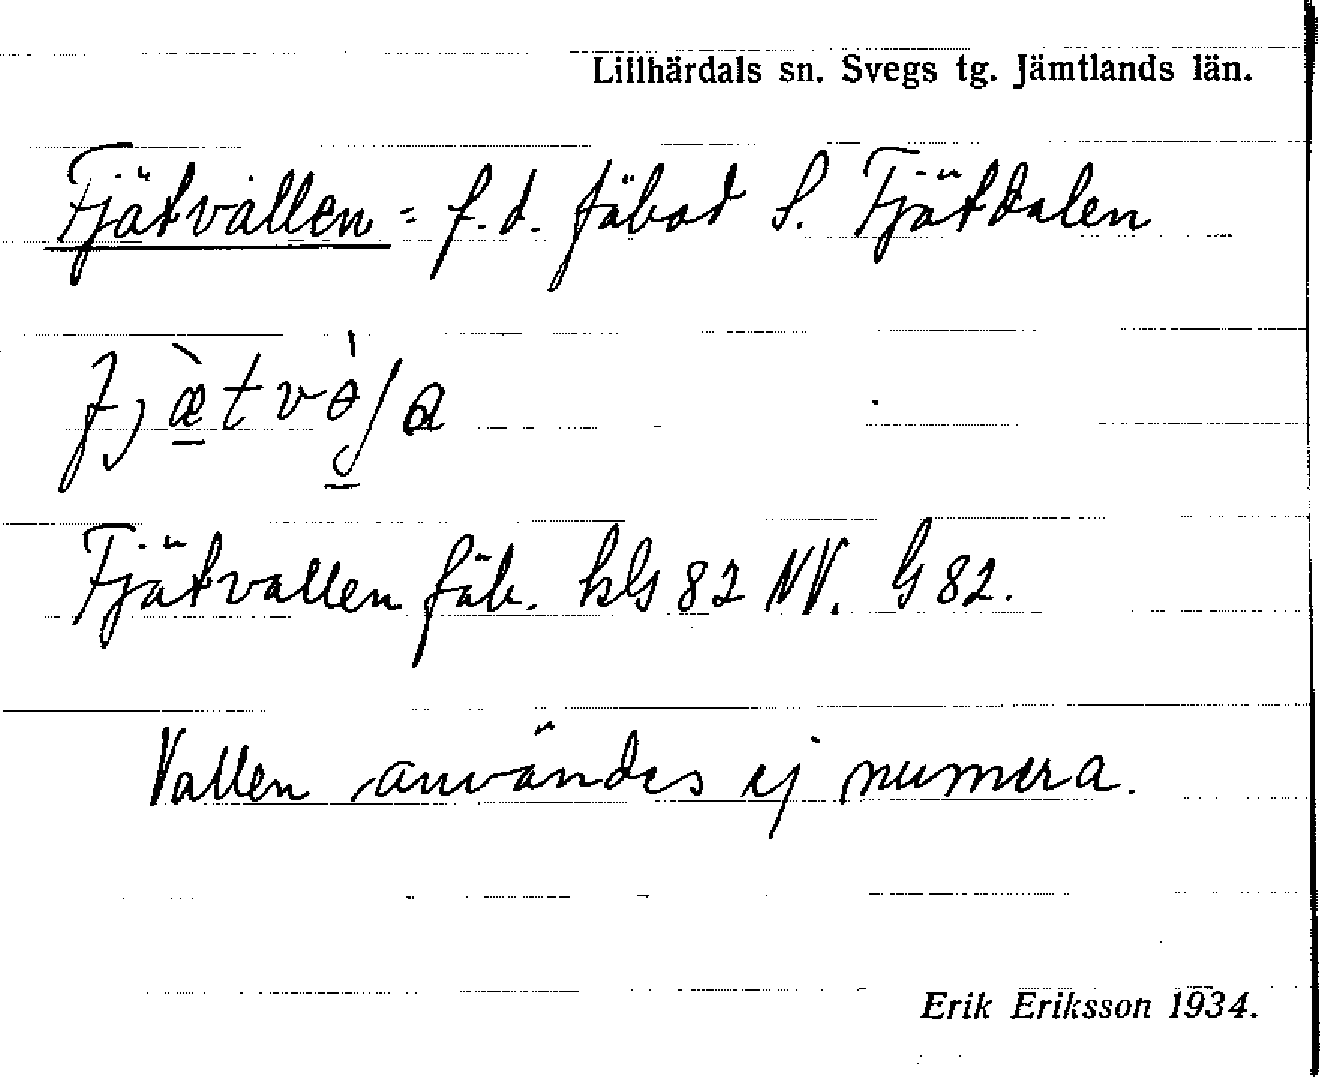 Lillhärdals sn. Svegs tg. Jämtlands län.
Fjätvallen = f.d. fäbod S. Fjätdalen
Fjätvallen fäb. kbl 82 NV. G 82.
Vallen användes ej numera.
Erik Eriksson 1934.